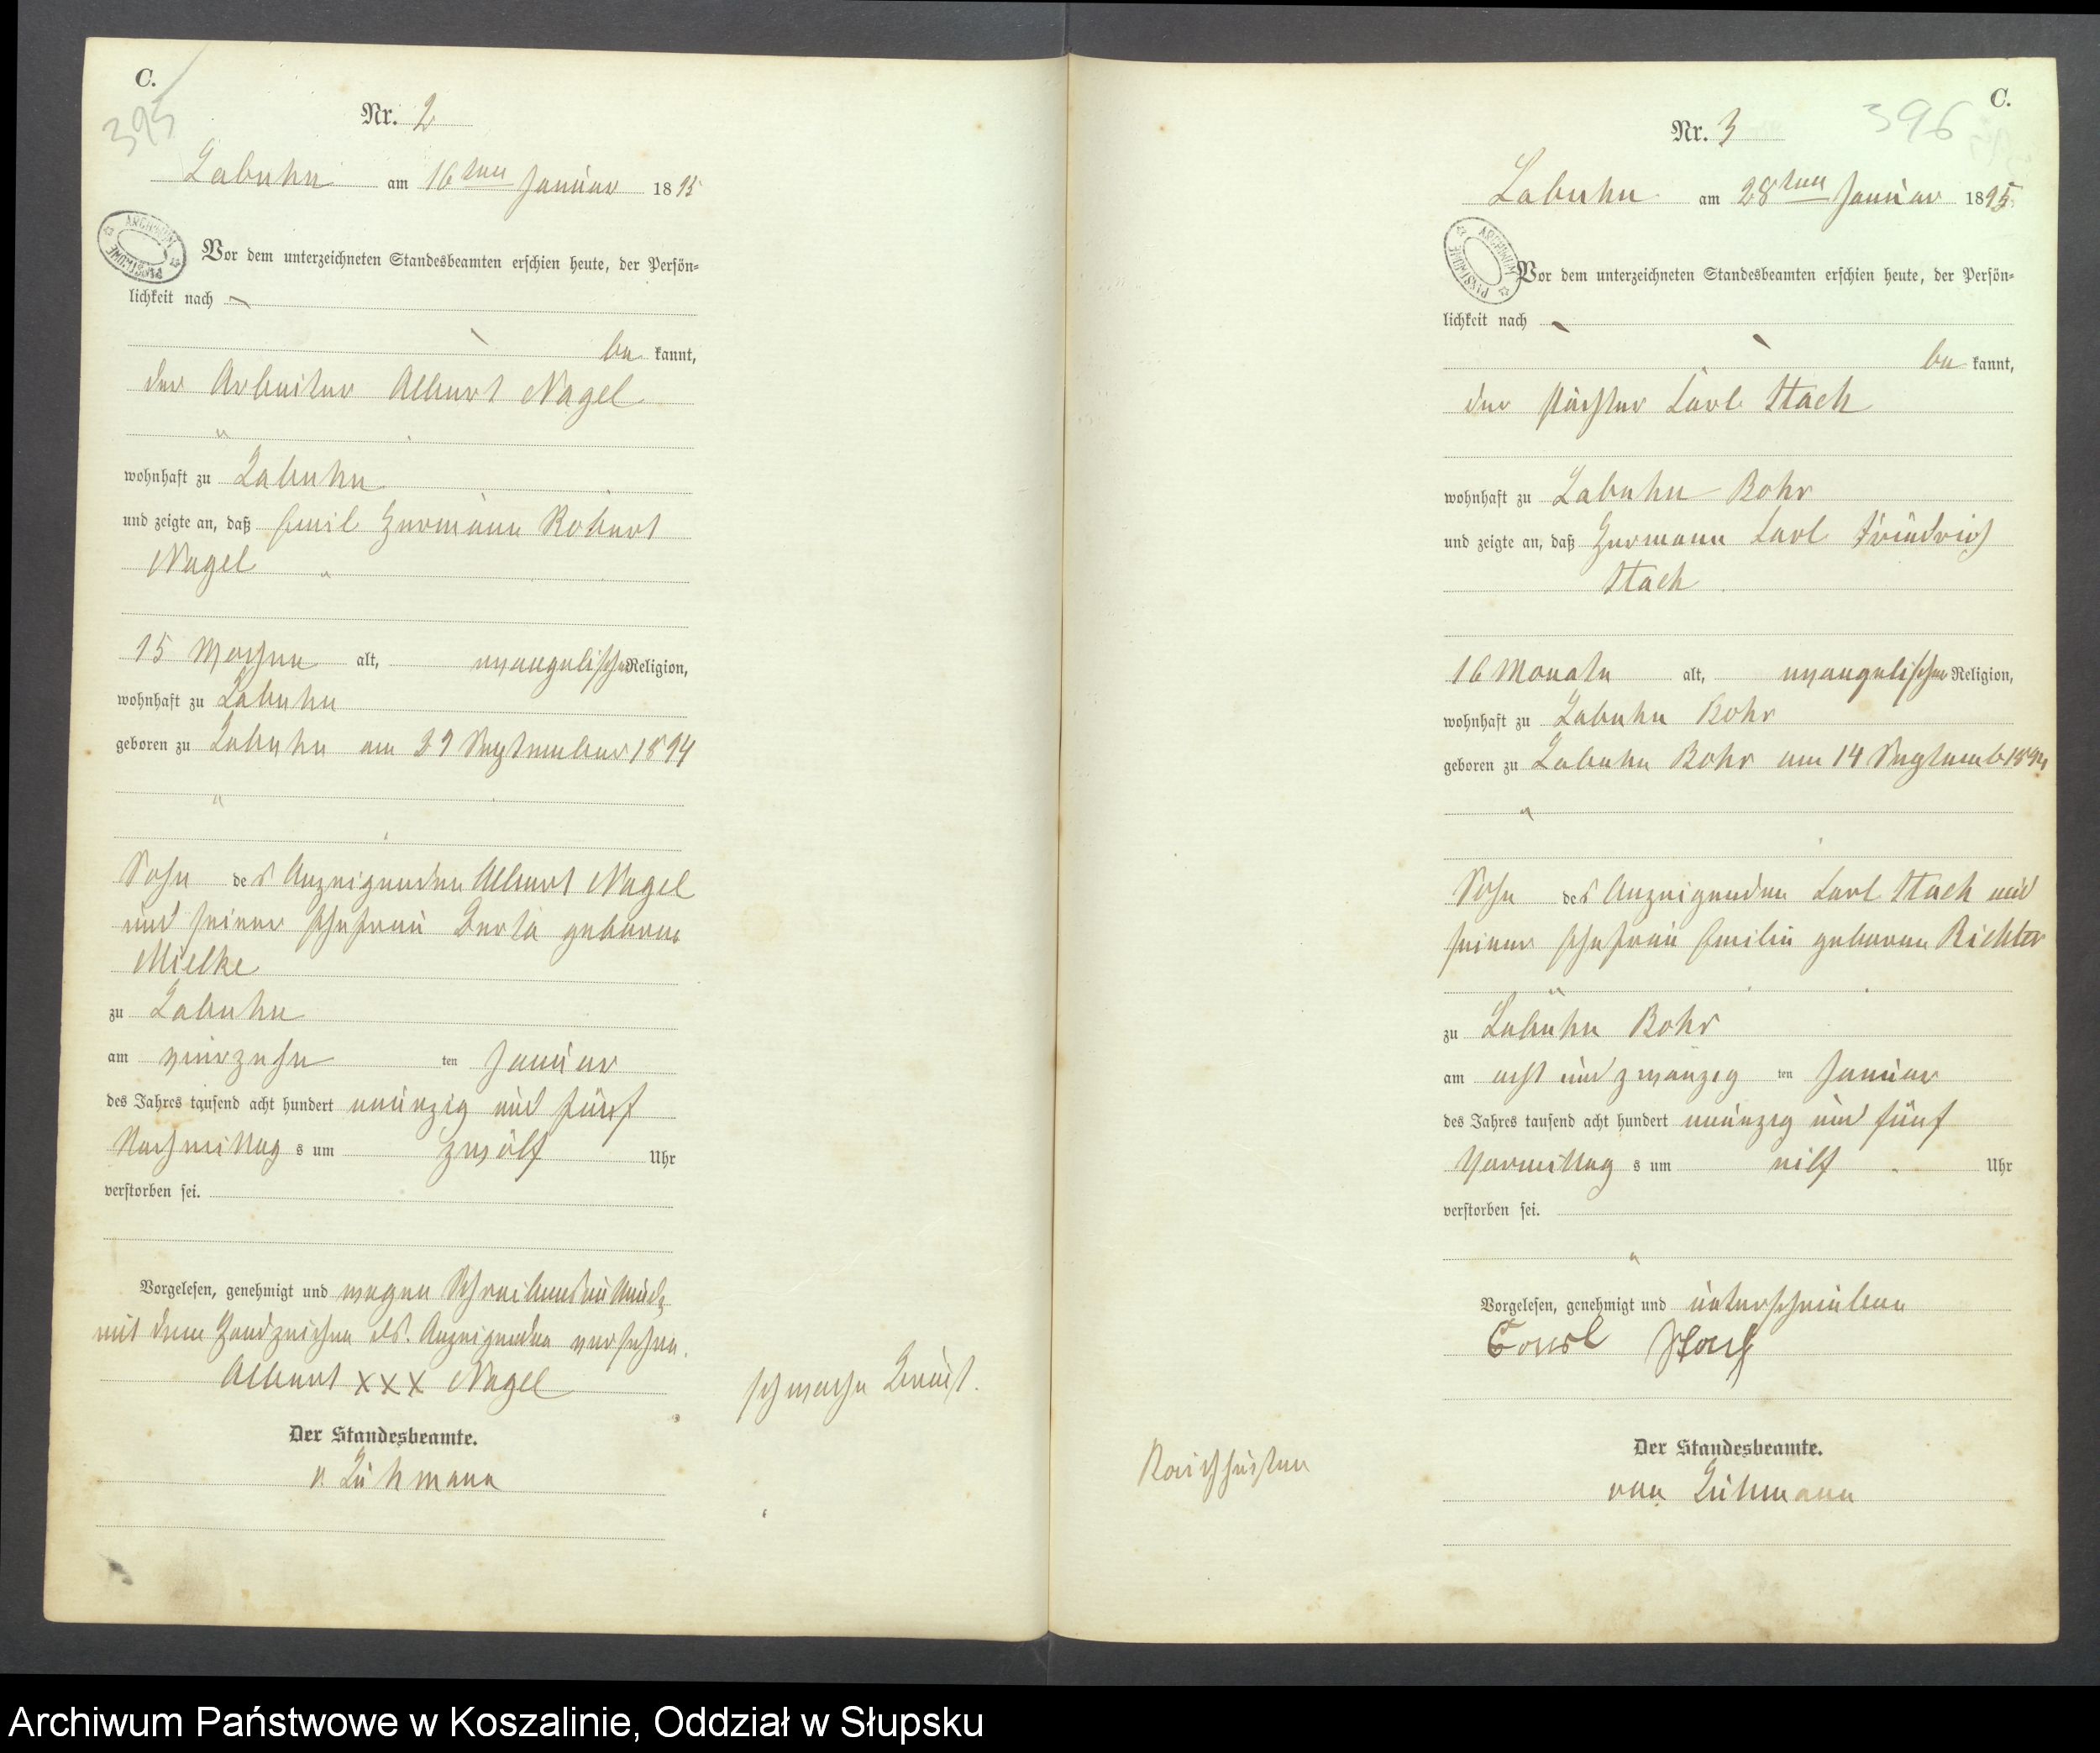 C.
395
Nr. 2
Labuhn am 16ten Januar 1895
ARCHIWUM PAŃSTWOWE
Vor dem unterzeichneten Standesbeamten erschien heute, der Persön-
lichkeit nach
be kannt,
der Arbeiter Albert Nagel
wohnhaft zu Labuhn
und zeigte an, daß Emil Hermann Robert
Nagel
15 Wochen alt, evangelischer Religion,
wohnhaft zu Labuhn
geboren zu Labuhn am September 1894
Sohn des Anzeigenden Albert Nagel
und seiner Ehefrau Berta geborene
Mielke
zu Labuhn
am vierzehn ten Januar
des Jahres tausend acht hundert neunzig und fünf
Nachmittag s um zwölf Uhr
verstorben sei.
Vorgelesen, genehmigt und wegen
mit dem Handzeichen des Anzeigenden versehen.
Albert XXX Nagel
Der Standesbeamte.
v. Lühmann
schwache Brust.
C.
396
Nr. 3
Labuhn am 28ten Januar 1895
ARCHIWUM PAŃSTWOWE
Vor dem unterzeichneten Standesbeamten erschien heute, der Persön-
lichkeit nach
be kannt,
der Carl Stach
wohnhaft zu Labuhn Bohr
und zeigte an, daß Hermann Carl Friedrich
Stach
16 Monate alt, evangelischer Religion,
wohnhaft zu Labuhn Bohr
geboren zu Labuhn Bohr am 14 Septemb
Sohn des Anzeigenden Carl Stach und
seiner Ehefrau Emilie geborene Richter
zu Labuhn Bohr
am acht und zwanzig ten Januar
des Jahres tausend acht hundert neunzig und fünf
Vormittag s um elf Uhr
verstorben sei.
Vorgelesen, genehmigt und unterschrieben
Carl Stach
Der Standesbeamte.
von Lühmann
Archiwum Państwowe w Koszalinie, Oddział w Słupsku